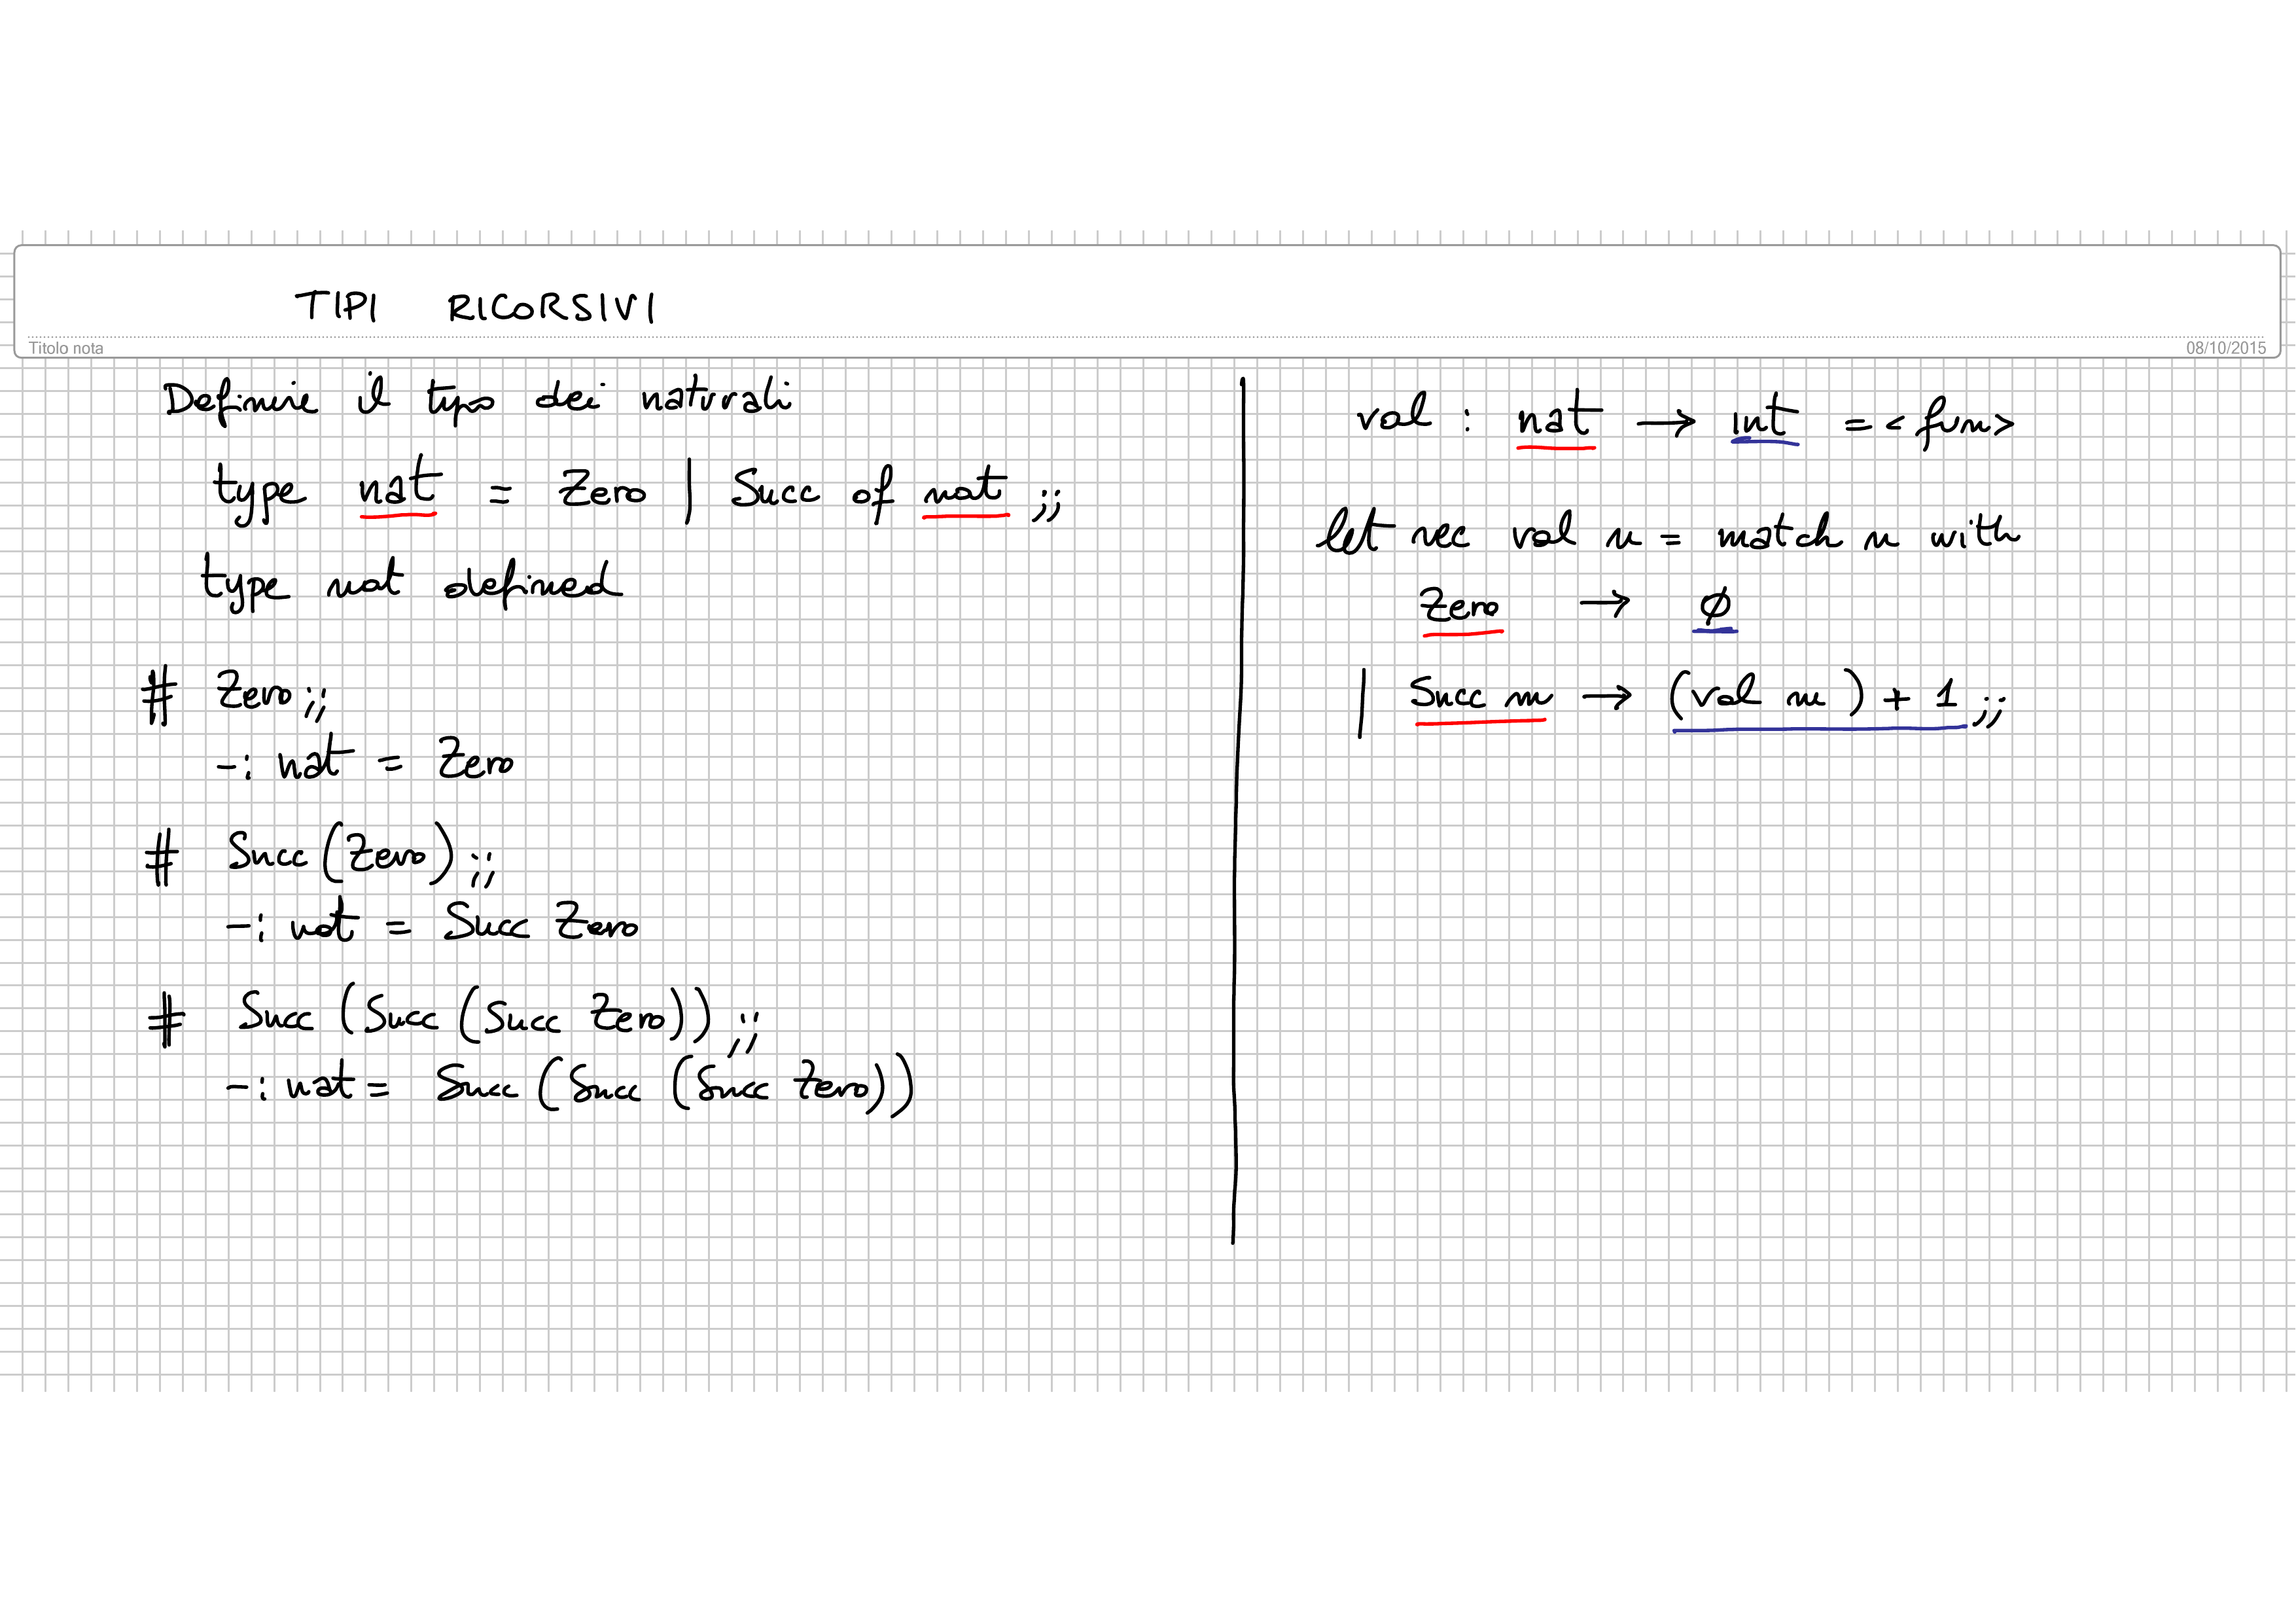 TIPI RICORSIVI
Titolo nota
08/10/2015
Definire il tipo dei naturali
type nat = Zero | Succ of nat ;;
type nat defined
# Zero;;
-: nat = Zero
# Succ (Zero) ;;
-: nat = Succ Zero
# Succ (Succ (Succ Zero)) ;;
-: nat = Succ (Succ (Succ Zero))
val : nat → int = <fun>
let rec val n = match n with
Zero → ∅
| Succ m → (val m) + 1 ;;